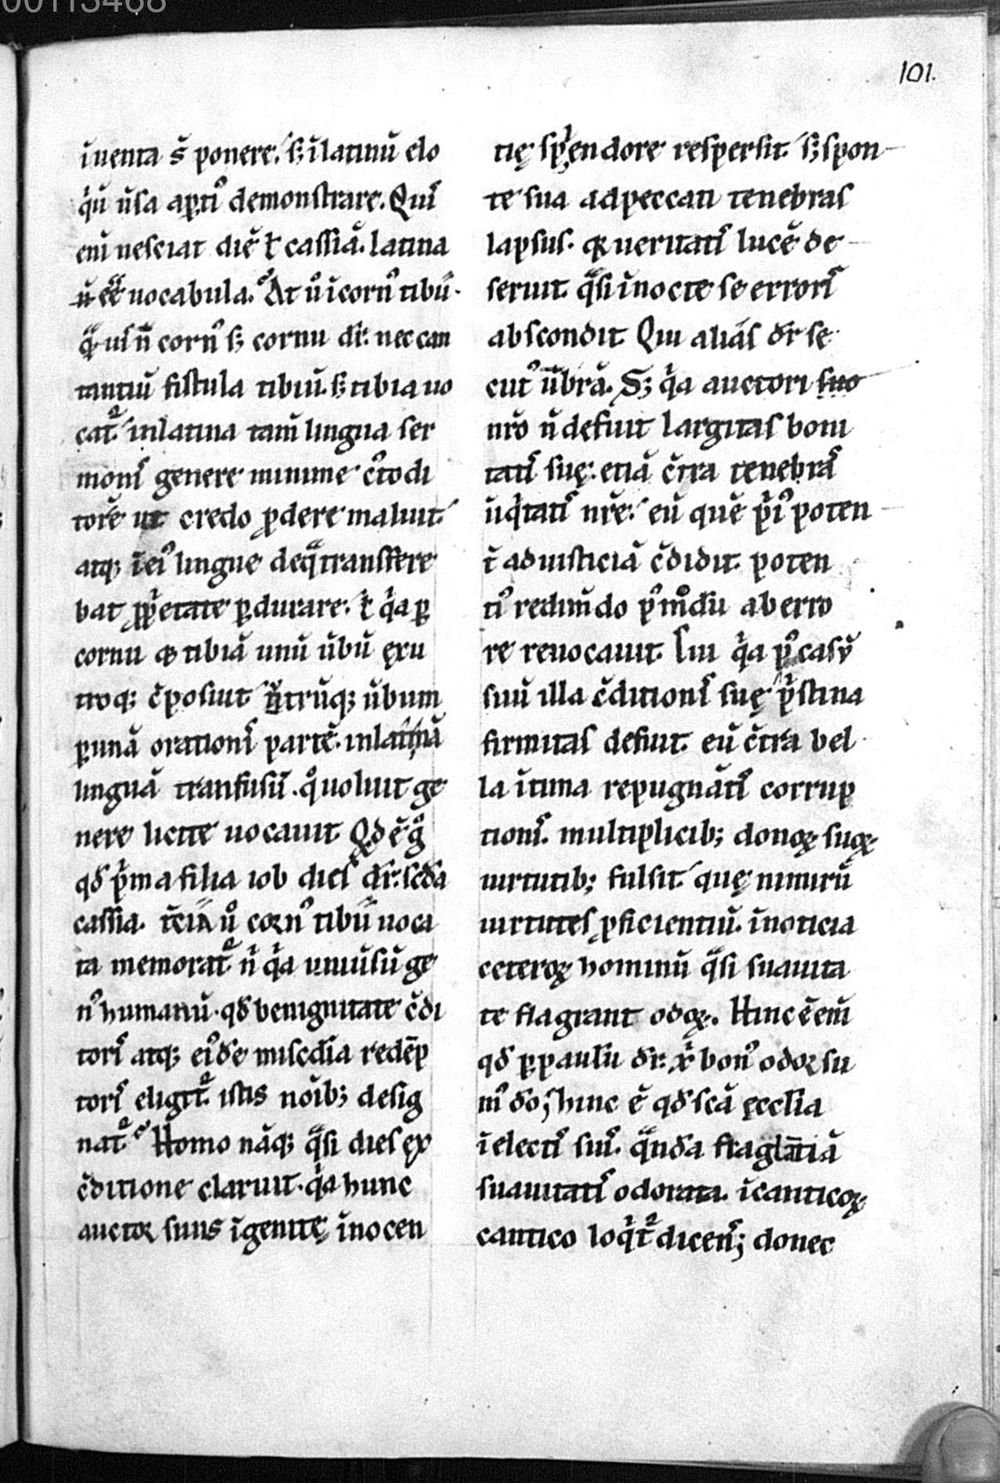 00113468
101.
īuenta s̄ ponere. sꝫ īlatinū elo
q̇ū ūsa aꝑti᷒ demonstrare. Quıſ
enī nesciat diē ł cassiā. latina
n̄ eē uocabula. At ū ī corn᷒ tibū.
q̄ uıſ n̄ corn᷒ sꝫ cornu dr̄. nec can
tantiū fistula tibiū. sꝫ tibia uo
cat᷒. inlatina tam̄ lingua ser
moniſ genere minime c̄todi
tore᷒ ut credo ꝓdere maluit.
atqꝫ īei᷒ lingue deq̄ transfere
bat ꝓp̄etate ꝑdurare. ł q̇a ꝑ
cornu ⁊ tibiā unū ūbū ex u
troqꝫ c̄posuit utrūqꝫ ūbum
ꝑ unā orationiſ partē. inlatinā
linguā tranfusū. q̊ uoluit ge
nere licite uocauit Qđ ē g̊
qđ p̄ma filia iob dies dr̄. sc̄da
cassia. t̄cia ū corn᷒ tibū uoca
ta memorat᷒. n̄ q̇a uniūsū ge
n᷒ humanū. qđ benignitate c̄di
toriſ atqꝫ ei᷒de misc̄dia redēp
toriſ eligit᷒. istis noībꝫ desig
nat᷒. Homo nāqꝫ q̄si dies ex
c̄ditione claruit. q̇a hunc
auctor suus īgenitę īnocen
tię sp̄endore respersit. sꝫ spon
te sua ad peccati tenebras
lapsus. q̇ ueritatiſ lucē de
seruit. q̄si īnocte se erroriſ
abscondit Qui aliaſ dr̄ se
cut᷒ ūbrā. Sꝫ q̇a auctori suo
nr̄o n̄ defuit largitas boni
tatiſ suę. etiā c̄tra tenebraſ
īiq̇tatiſ nr̄e. eū quē p̄ī᷒ poten
t̄ ad iusticiā c̄didit. poten
ti᷒ redim̄do p᷒mod̄ū ab erro
re reuocauit. Cui q̇a p᷒ casū
suū illa c̄ditioniſ suę p̄stina
firmitas defuit. eū c̄tra bel
la ītima repugnātiſ corrup
tioniſ. multiplicibꝫ donoꝝ suoꝝ
uirtutibꝫ fulsit. quę nimirū
uirtutes ꝓficientiū. īnoticia
ceteroꝝ hominū q̄si suauita
te flagrant odoꝝ. Hinc ē enī
qđ ꝑ paulū dr̄. xp̄i bon᷒ odor su
m᷒ dō; hinc ē qđ sc̄a ęcclīa
ī electiſ suiſ. q̄nda flaglātiā
suauitatiſ odorata. īcanticoꝝ
cantico loq̇t᷒ dicenſ; donec